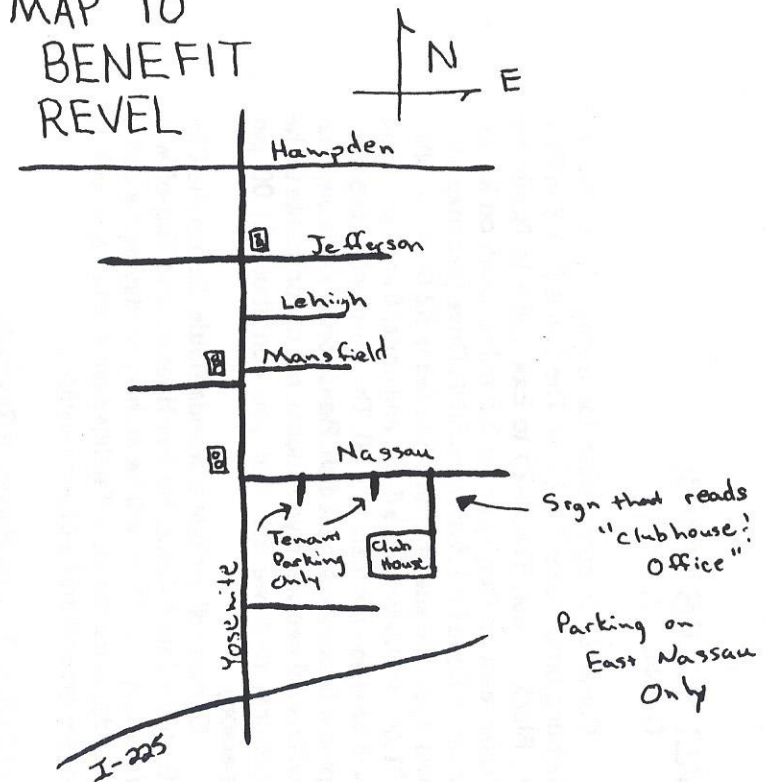 MAP TO
BENEFIT
REVEL
N
E
Hampden
Jefferson
Lehigh
Mansfield
Nassau
Tenant
Parking
Only
Club
House
Sign that reads
"clubhouse!
Office"
Yosemite
Parking on
East Nassau
Only
I-225